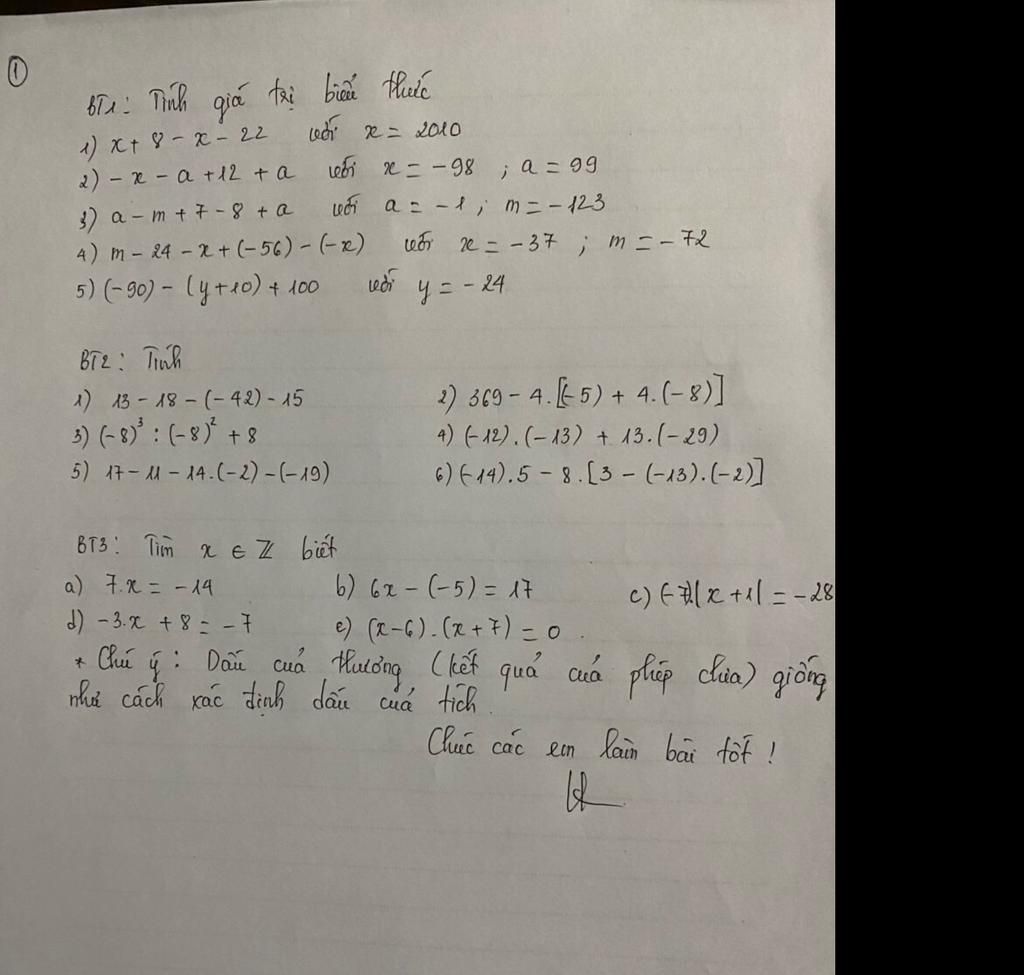 ①
BT1: Tính giá trị biểu thức
1) x + 8 - x - 22 với x = 2010
2) - x - a + 12 + a với x = -98 ; a = 99
3) a - m + 7 - 8 + a với a = -1 ; m = -123
4) m - 24 - x + (-56) - (-x) với x = -37 ; m = -72
5) (-90) - (y+10) + 100 với y = -24
BT2: Tính
1) 13 - 18 - (-42) - 15 2) 369 - 4.[(-5) + 4.(-8)]
3) (-8)³ : (-8)² + 8 4) (-12).(-13) + 13.(-29)
5) 17 - 11 - 14.(-2) - (-19) 6) (-14).5 - 8.[3 - (-13).(-2)]
BT3: Tìm x ∈ ℤ biết
a) 7.x = -14 b) 6x - (-5) = 17 c) (-7).|x+1| = -28
d) -3.x + 8 = -7 e) (x-6).(x+7) = 0.
* Chú ý: Dấu của thương (kết quả của phép chia) giống
như cách xác định dấu của tích.
Chúc các em làm bài tốt!